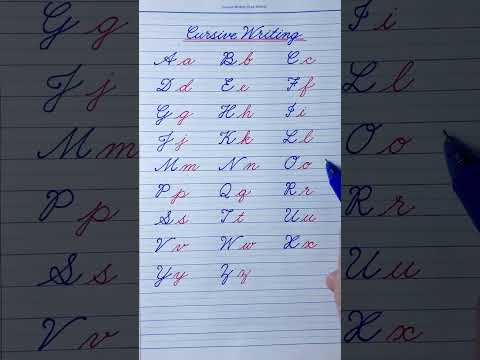 Cursive Writing
A a B b C c
D d E e F f
G g H h I i
J j K k L l
M m N n O o
P p Q q R r
S s T t U u
V v W w X x
Y y Z z
G g
J j
M m
P p
S s
V v
I i
L l
O o
R r
U u
X x